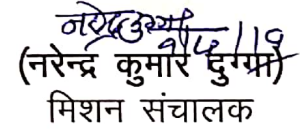 (नरेन्द्र कुमार दुग्गा)
मिशन संचालक